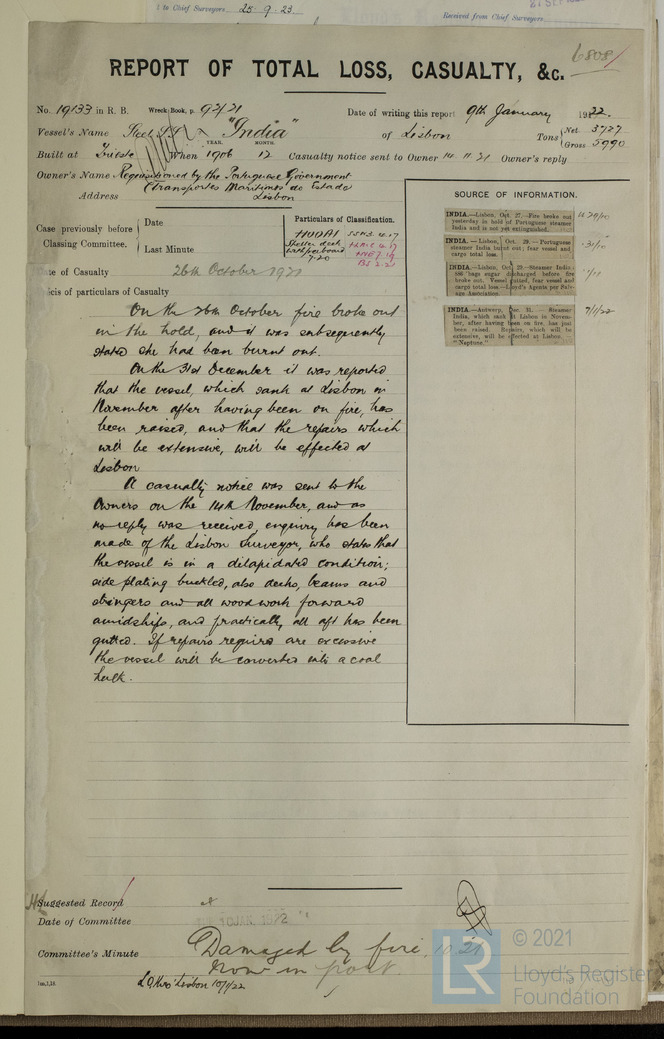 to Chief Surveyors 25.9.23
Received from Chief Surveyors
6808
REPORT OF TOTAL LOSS, CASUALTY, &c.
No. 19133 in R. B. Wreck Book, p. 92/21 Date of writing this report 9th January 1922.
Vessel's Name Steel "India" of Lisbon Tons Net 3727
Gross 5990
YEAR. MONTH.
Built at Trieste When 1906 12 Casualty notice sent to Owner 14.11.21 Owner's reply
Owner's Name Requisitioned by the Portuguese Government
(Transportes Maritimos do Estado
Address Lisbon
SOURCE OF INFORMATION.
Case previously before Classing Committee.
Date
Last Minute
Particulars of Classification.
Shelter deck
with freeboard
7.20
Date of Casualty 26th October 1921
Precis of particulars of Casualty
INDIA.—Lisbon, Oct. 27.—Fire broke out
yesterday in hold of Portuguese steamer
India and is not yet extinguished.
INDIA. — Lisbon, Oct. 29. — Portuguese
steamer India burnt out; fear vessel and
cargo total loss.
INDIA.—Lisbon, Oct. 29.—Steamer India:
886 bags sugar discharged before fire
broke out. Vessel gutted, fear vessel and
cargo total loss.—Lloyd's Agents per Sal-
vage Association.
INDIA.—Antwerp, Dec. 31. — Steamer
India, which sank at Lisbon in Novem-
ber, after having been on fire, has just
been raised. Repairs, which will be
extensive, will be effected at Lisbon.—
"Neptune."
7/1/22
On the 26th October fire broke out
in the hold, and it was subsequently
stated she had been burnt out.
On the 31st December it was reported
that the vessel, which sank at Lisbon in
November after having been on fire, has
been raised, and that the repairs which
will be extensive, will be effected at
Lisbon
A casualty notice was sent to the
Owners on the 14th November, and as
no reply was received, enquiry has been
made of the Lisbon Surveyor, who states that
the vessel is in a dilapidated condition;
side plating buckled, also decks, beams and
stringers and all woodwork forward
amidships, and practically all aft has been
gutted. If repairs required are excessive
the vessel will be converted into a coal
hulk.
Suggested Record
Date of Committee 10 JAN. 1922
Committee's Minute Damaged by fire, 10.21
Now in port.
Lisbon 10/1/22
© 2021
LR
Lloyd's Register
Foundation